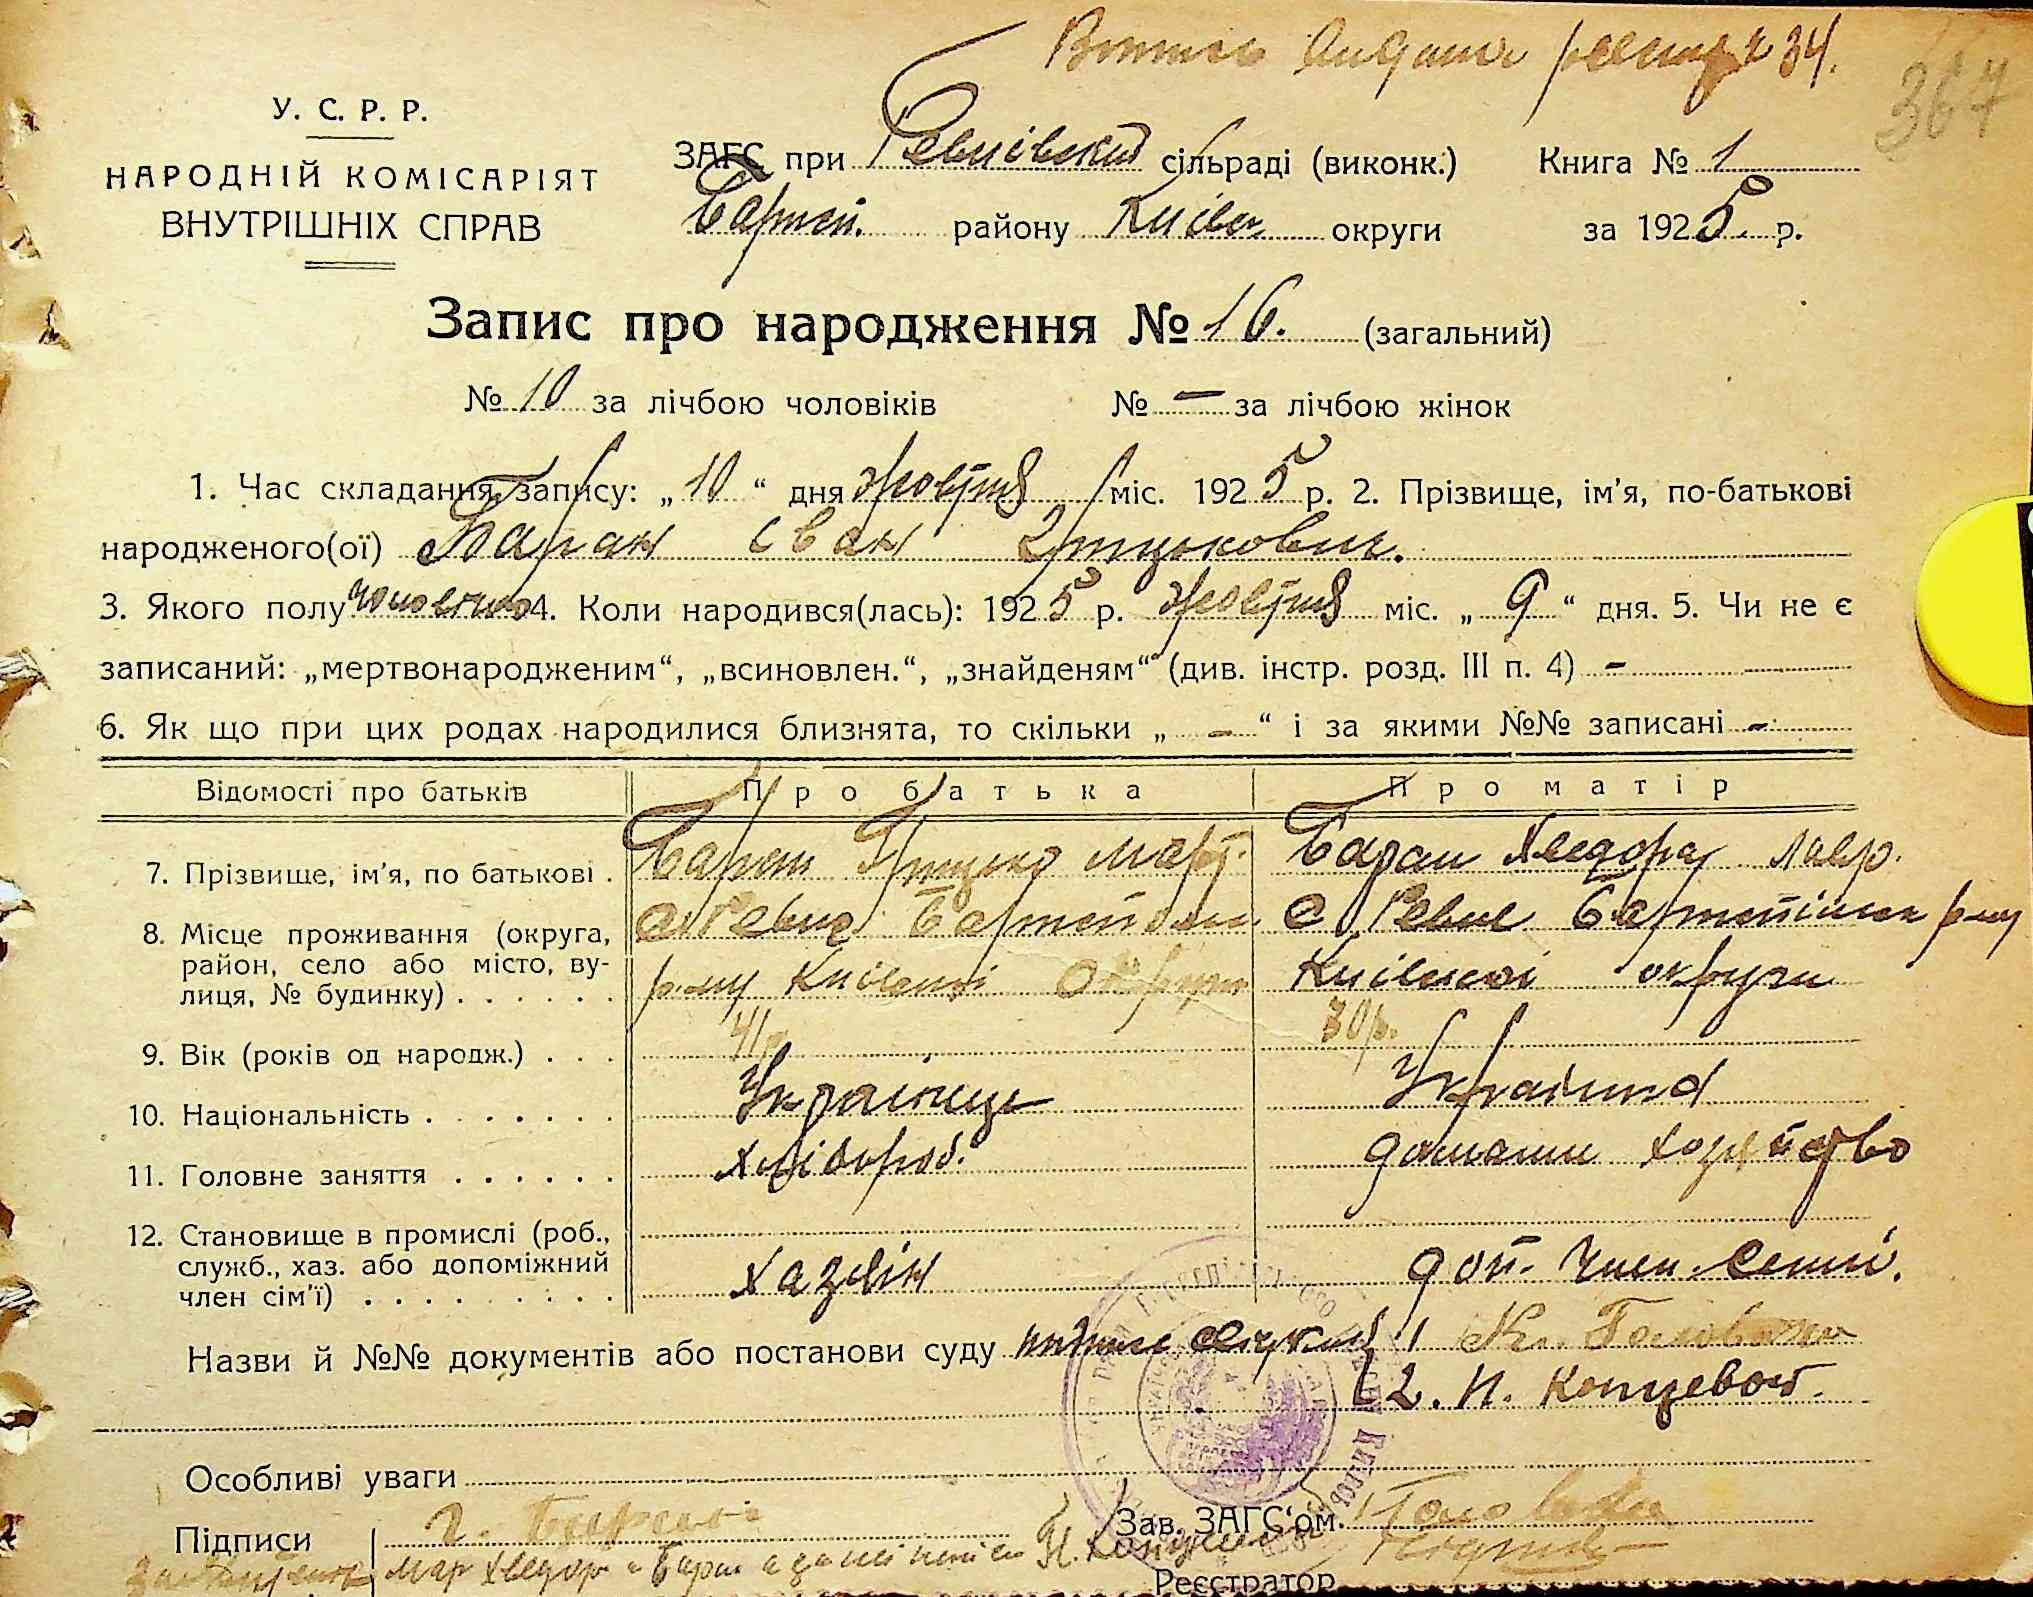 Виписъ видана реєстр № 34.
367
У. С. Р. Р.
НАРОДНІЙ КОМІСАРІЯТ
ВНУТРІШНІХ СПРАВ
ЗАГС при Ревнівський сільраді (виконк.) Книга № 1
Барт. району Київ. округи за 1925 р.
Запис про народження № 16. (загальний)
№ 10 за лічбою чоловіків № — за лічбою жінок
1. Час складання запису: „10“ дня жовтня міс. 1925 р. 2. Прізвище, ім'я, по-батькові
народженого(ої) Баран Іван Грицькович.
3. Якого полу 4. Коли народився(лась): 1925 р. жовтня міс. „9“ дня. 5. Чи не є
записаний: „мертвонародженим“, „всиновлен.“, „знайденям“ (див. інстр. розд. III п. 4) -
6. Як що при цих родах народилися близнята, то скільки „ - “ і за якими №№ записані -
Відомості про батьків Про батька Про матір
7. Прізвище, ім'я, по батькові . Баран Грицько Март. Баран Хведора Лавр.
8. Місце проживання (округа, с. Ревне с Ревне
район, село або місто, ву- р-ну Київської Округи Київської округи
лиця, № будинку) . . . . . .
9. Вік (років од народж.) . . . 41р. 30р.
10. Національність . . . . . . . Українець Українка
11. Головне заняття . . . . . . хлібороб. домашн хозяйство
12. Становище в промислі (роб.,
служб., хаз. або допоміжний хазяїн доп. член. семьї.
член сім'ї) . . . . . . . . .
Назви й №№ документів або постанови суду 1
2. Н. Концевой.
Особливі уваги
Підписи Г. Баран Зав. ЗАГС'ом.
Хведор Баран Н. Концевой
Реєстратор